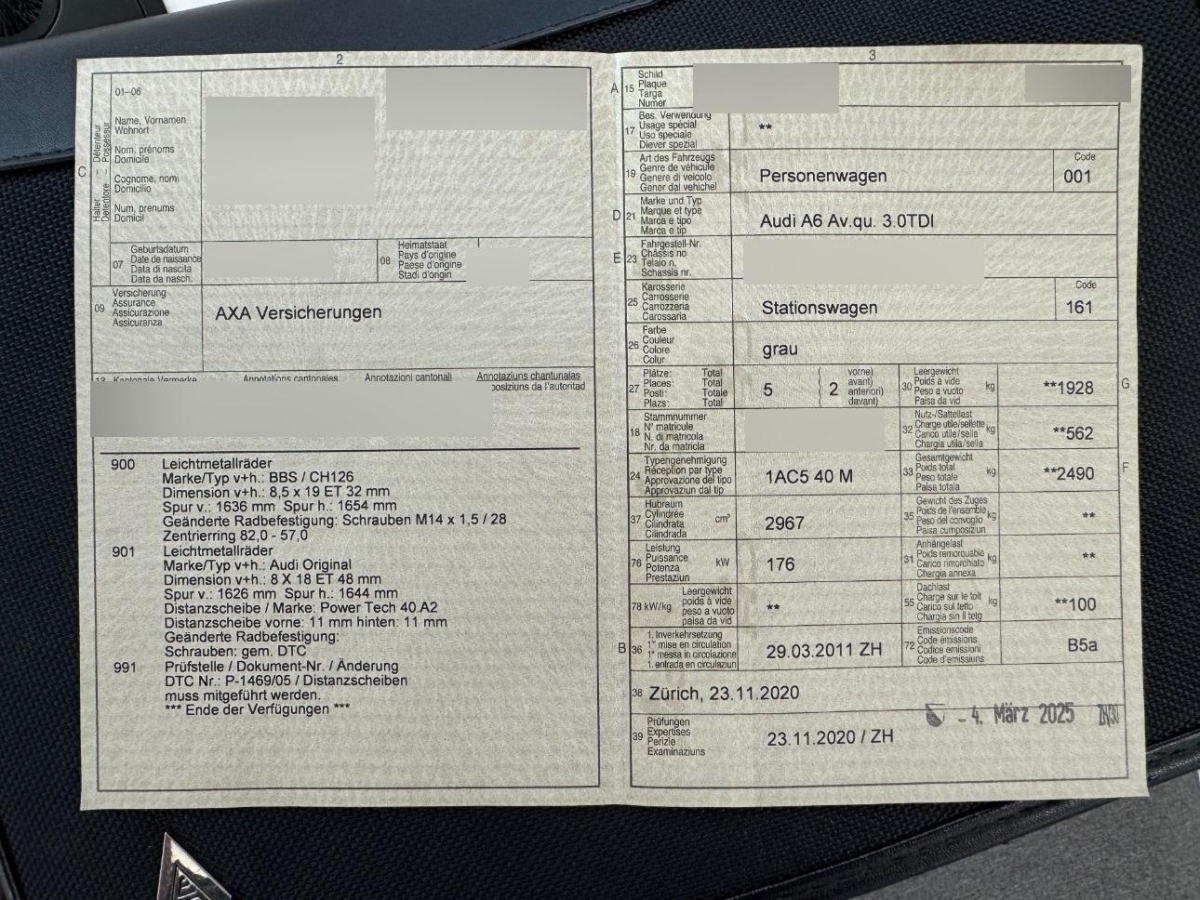 2
01–06
Name, Vornamen
Wohnort
Nom, prénoms
Domicile
Cognome, nomi
Domicilio
Num, prenums
Domicil
C
Halter
Détenteur
Detentore
Possessur
07
Geburtsdatum
Date de naissance
Data di nascita
Data da nasch.
08
Heimatstaat
Pays d'origine
Paese d'origine
Stadi d'origin
09
Versicherung
Assurance
Assicurazione
Assicuranza
AXA Versicherungen
Kantonale Vermerke
Annotations cantonales
Annotazioni cantonali
Annotaziuns chantunalas
posiziuns da l'autoritad
900 Leichtmetallräder
Marke/Typ v+h.: BBS / CH126
Dimension v+h.: 8,5 x 19 ET 32 mm
Spur v.: 1636 mm Spur h.: 1654 mm
Geänderte Radbefestigung: Schrauben M14 x 1,5 / 28
Zentrierring 82,0 - 57,0
901 Leichtmetallräder
Marke/Typ v+h.: Audi Original
Dimension v+h.: 8 X 18 ET 48 mm
Spur v.: 1626 mm Spur h.: 1644 mm
Distanzscheibe / Marke: Power Tech 40.A2
Distanzscheibe vorne: 11 mm hinten: 11 mm
Geänderte Radbefestigung:
Schrauben: gem. DTC
991 Prüfstelle / Dokument-Nr. / Änderung
DTC Nr.: P-1469/05 / Distanzscheiben
muss mitgeführt werden.
*** Ende der Verfügungen ***
3
A
15
Schild
Plaque
Targa
Numer
17
Bes. Verwendung
Usage spécial
Uso speciale
Diever spezial
**
19
Art des Fahrzeugs
Genre de véhicule
Genere di veicolo
Gener dal vehichel
Personenwagen
Code
001
D
21
Marke und Typ
Marque et type
Marca e tipo
Marca e tip
Audi A6 Av.qu. 3.0TDI
E
23
Fahrgestell-Nr.
Châssis no
Telaio n.
Schassis nr.
25
Karosserie
Carrosserie
Carrozzeria
Carossaria
Stationswagen
Code
161
26
Farbe
Couleur
Colore
Colur
grau
27
Plätze: Total
Places: Total
Posti: Totale
Plazs: Total
5
2
vorne)
avant)
anteriori)
davant)
30
Leergewicht
Poids à vide
Peso a vuoto
Paisa da vid
kg
**1928
G
18
Stammnummer
N° matricule
N. di matricola
Nr. da matricla
32
Nutz-/Sattellast
Charge utile/sellette
Carico utile/sella
Chargia utila/sella
kg
**562
24
Typengenehmigung
Réception par type
Approvazione del tipo
Approvaziun dal tip
1AC5 40 M
33
Gesamtgewicht
Poids total
Peso totale
Paisa totala
kg
**2490
F
37
Hubraum
Cylindrée
Cilindrata
Cilindrada
cm³
2967
35
Gewicht des Zuges
Poids de l'ensemble
Peso del convoglio
Paisa cumposiziun
kg
**
76
Leistung
Puissance
Potenza
Prestaziun
kW
176
31
Anhängelast
Poids remorquable
Carico rimorchiabile
Chargia annexa
kg
**
78 kW/kg
Leergewicht
poids à vide
peso a vuoto
paisa da vid
**
55
Dachlast
Charge sur le toit
Carico sul tetto
Chargia sin il tetg
kg
**100
B
36
1. Inverkehrsetzung
1re mise en circulation
1a messa in circolazione
1. entrada en circulaziun
29.03.2011 ZH
72
Emissionscode
Code émissions
Codice emissioni
Code d'emissiuns
B5a
38 Zürich, 23.11.2020
39
Prüfungen
Expertises
Perizie
Examinaziuns
23.11.2020 / ZH
- 4. März 2025